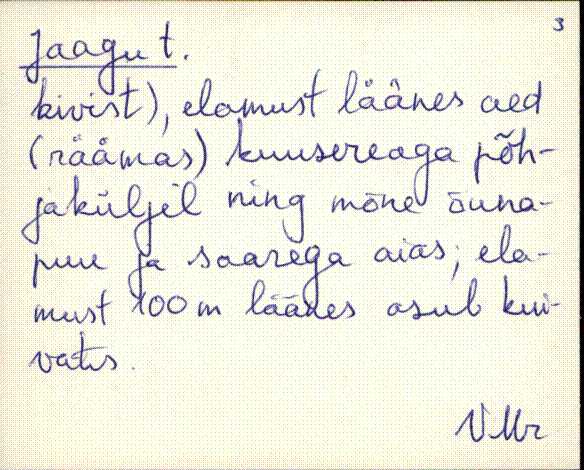 3
Jaagu t.
kivist), elamust läänes aed
(räämas) kuusereaga põh-
jaküljel ning mõne õuna-
puu ja saarega aias; ela-
must 100 m läänes asub kui-
vatis.
VMr